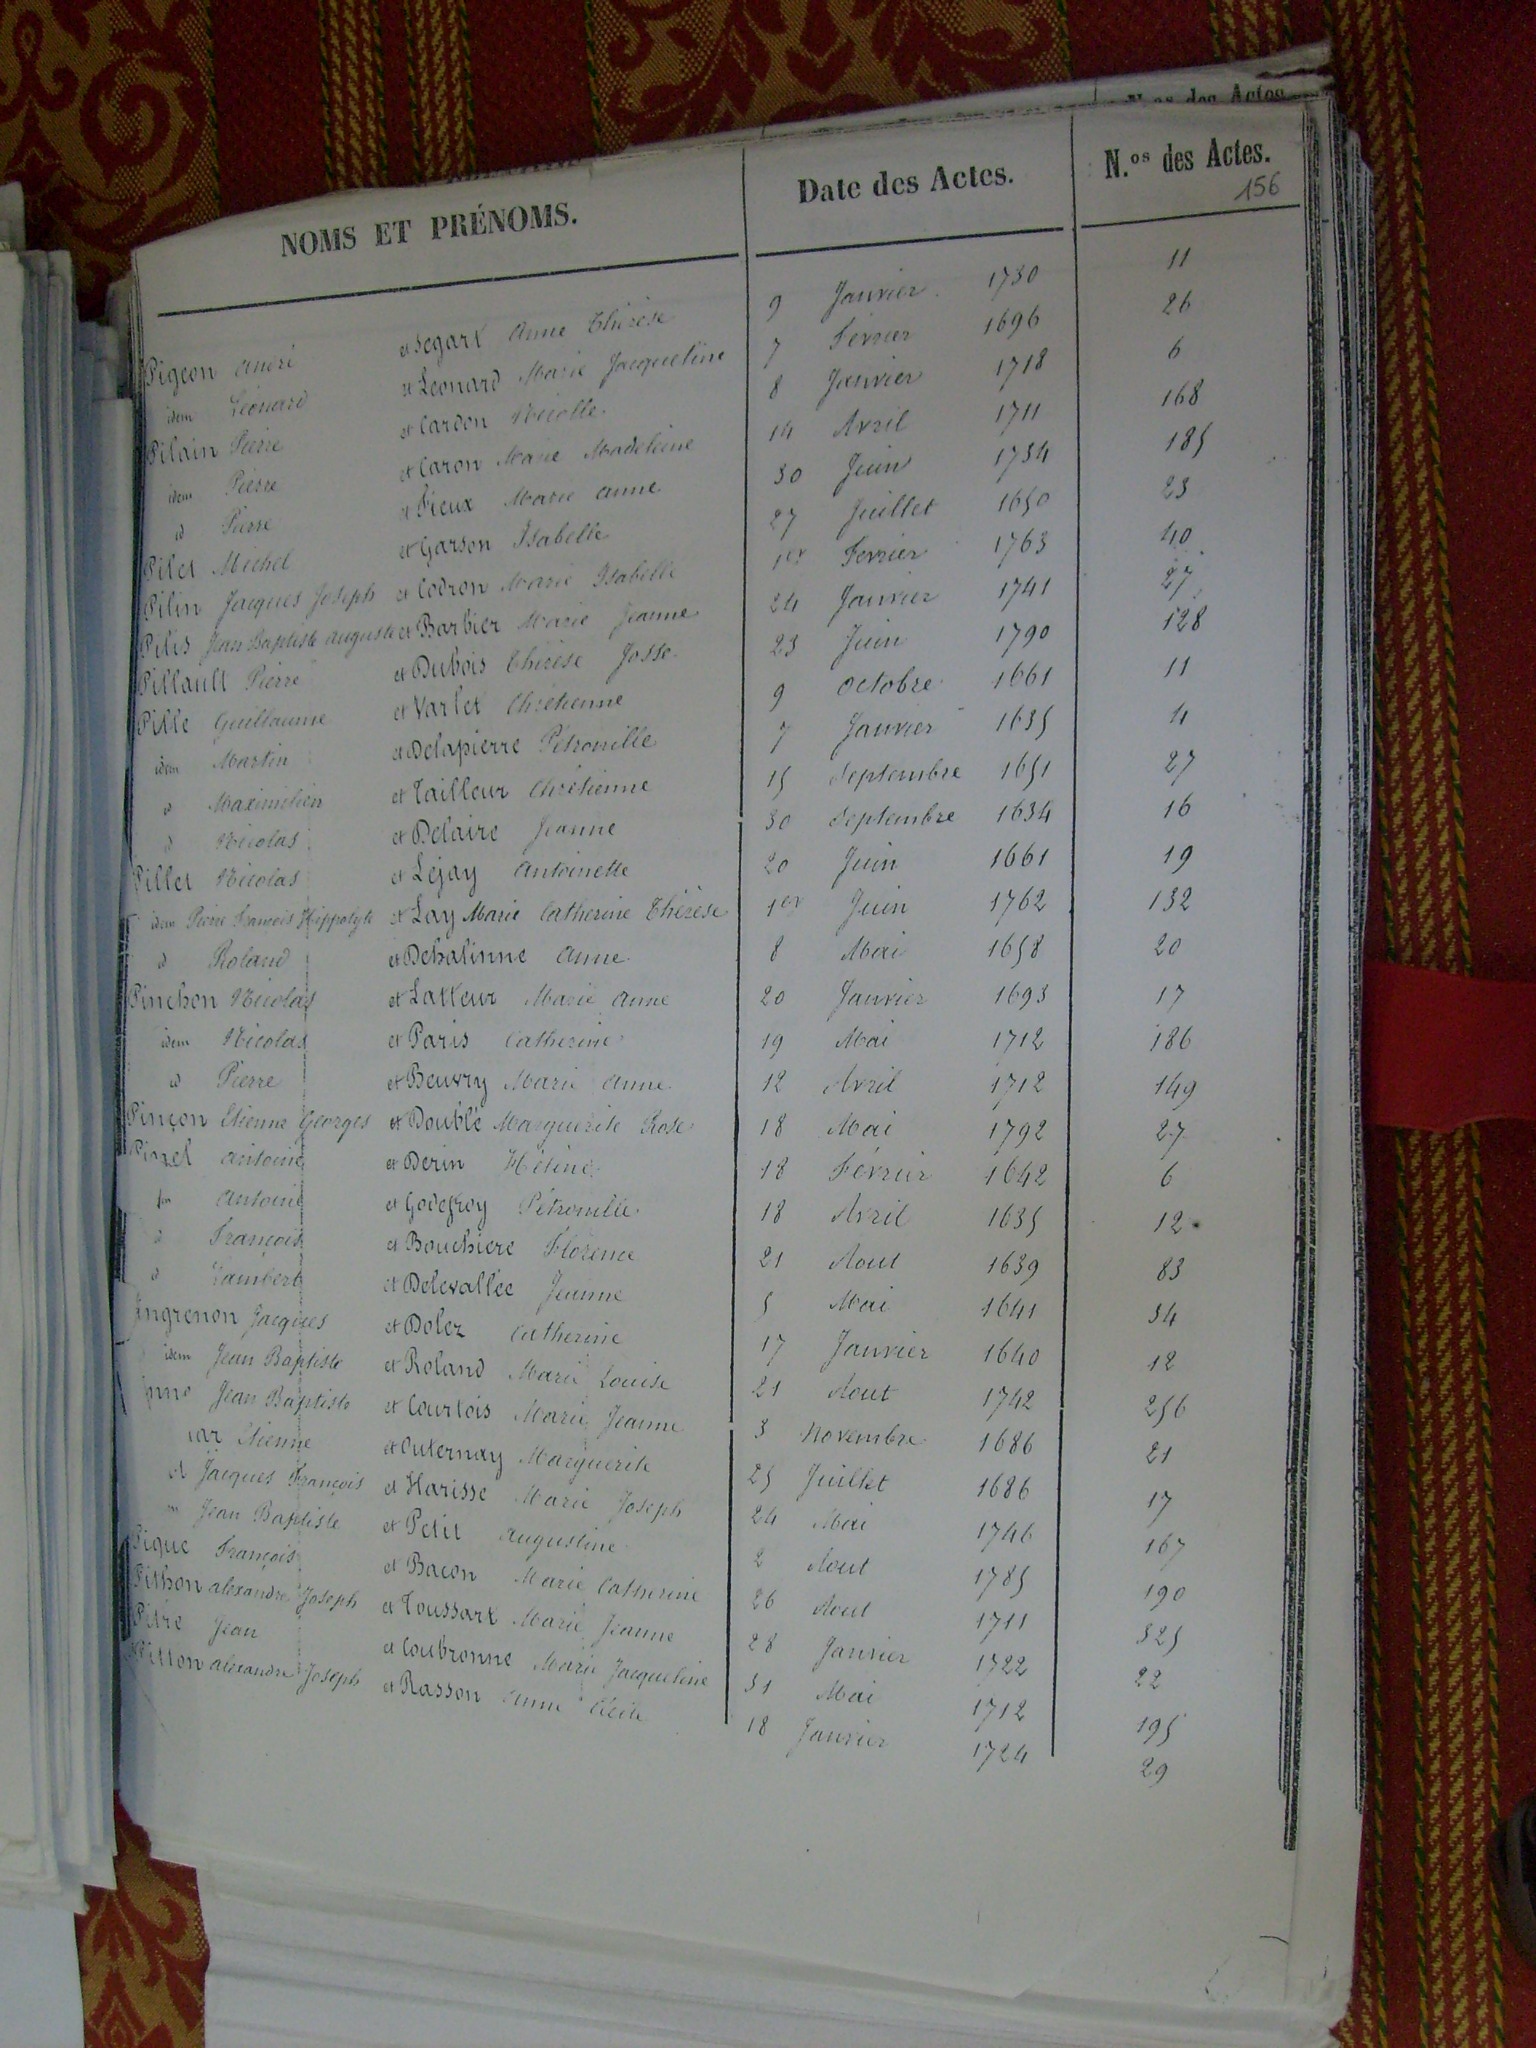 N.os des Actes
NOMS ET PRÉNOMS. Date des Actes. N.os des Actes.
156
Pigeon André et Segart Anne Thérèse 9 Janvier 1730 11
idem Léonard et Leonard Marie Jacqueline 7 Février 1696 26
Pilain Pierre et Cardon Nicolle 8 Janvier 1718 6
idem Pierre et Caron Marie Madeleine 14 Avril 1711 168
id Pierre et Fieux Marie Anne 30 Juin 1734 185
Pilet Michel et Garson Isabelle 27 Juillet 1650 23
Pilin Jacques Joseph et Codron Marie Isabelle 1er Fevrier 1763 40
Pilis Jean Baptiste Auguste et Barbier Marie Jeanne 24 Janvier 1741 27
Pillault Pierre et Dubois Thérèse Josse 23 Juin 1790 128
Pille Guillaume et Varlet Chrétienne 9 Octobre 1661 11
idem Martin et Delapierre Pétronille 7 Janvier 1635 4
id Maximilien et Tailleur Chrétienne 15 Septembre 1651 27
id Nicolas et Delaire Jeanne 30 Septembre 1634 16
Pillet Nicolas et Lejay Antoinette 20 Juin 1661 19
idem Pierre François Hippolyte et Lay Marie Catherine Thérèse 1er Juin 1762 132
id Roland et Dehalinne Anne 8 Mai 1658 20
Pinchon Nicolas et Latteur Marie Anne 20 Janvier 1693 17
idem Nicolas et Paris Catherine 19 Mai 1712 186
id Pierre et Beuvry Marie Anne 12 Avril 1712 149
Pinçon Etienne Georges et Doublé Marguerite Rose 18 Mai 1792 27
Pinel Antoine et Derin Hélène 18 Février 1642 6
Antoine et Godefroy Pétronille 18 Avril 1635 12
id François et Bouchiere Florence 21 Aout 1639 83
id Lambert et Delevallée Jeanne 5 Mai 1641 34
ingrenon Jacques et Dolez Catherine 17 Janvier 1640 12
idem Jean Baptiste et Roland Marie Louise 21 Aout 1742 256
Jean Baptiste et Courtois Marie Jeanne 3 Novembre 1686 21
Etienne et Outernay Marguerite 25 Juillet 1686 17
id Jacques François et Harisse Marie Joseph 24 Mai 1746 167
Jean Baptiste et Petit Augustine 2 Aout 1785 190
Pique François et Bacon Marie Catherine 26 Aout 1711 325
Pithon Alexandre Joseph et Toussart Marie Jeanne 28 Janvier 1722 22
Pitre Jean et Coubronne Marie Jacqueline 31 Mai 1712 195
Pitton Alexandre Joseph et Rasson Anne Cécile 18 Janvier 1724 29